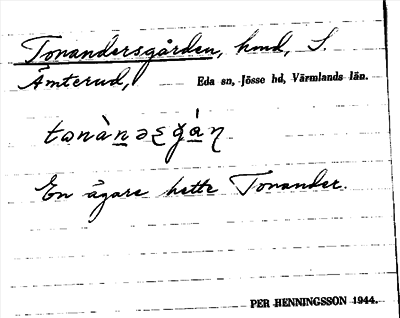 Tonandersgården, hmd, S.
Ämterud, Eda sn, Jösse hd, Värmlands län.
En ägare hette Tonander.
PER HENNINGSSON 1944.